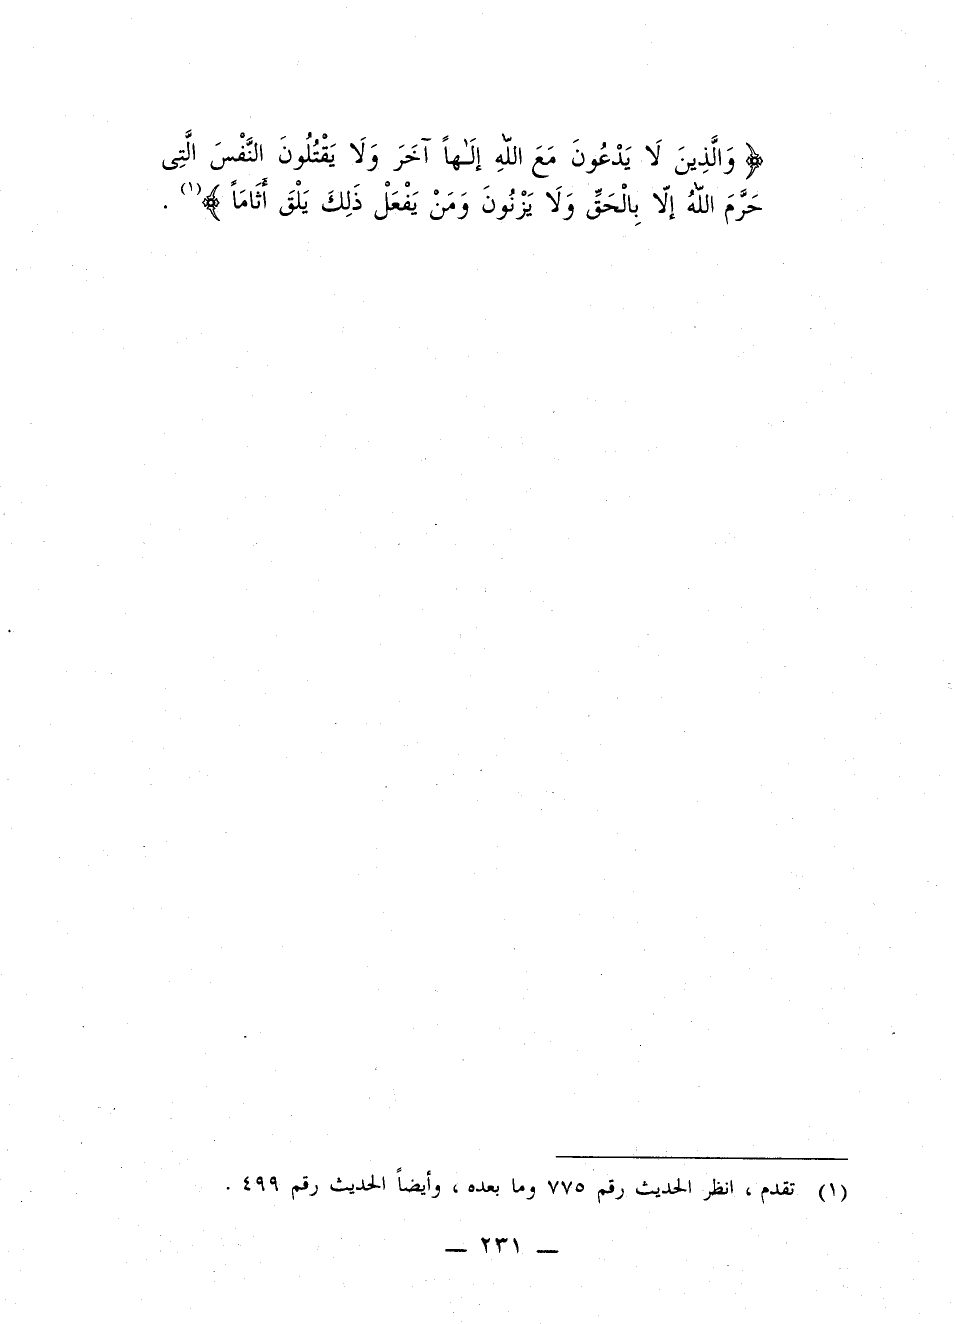 ﴿ وَالَّذِينَ لَا يَدْعُونَ مَعَ اللهِ إلَـٰهاً آخَرَ وَلَا يَقْتُلُونَ النَّفْسَ الَّتِى
حَرَّمَ اللهُ إلّا بِالْحَقِّ وَلَا يَزْنُونَ وَمَنْ يَفْعَلْ ذَلِكَ يَلْقَ أَثَامَاً ﴾(١) .
(١) تقدم ، انظر الحديث رقم ٧٧٥ وما بعده ، وأيضاً الحديث رقم ٤٩٩ .
— ٢٣١ —